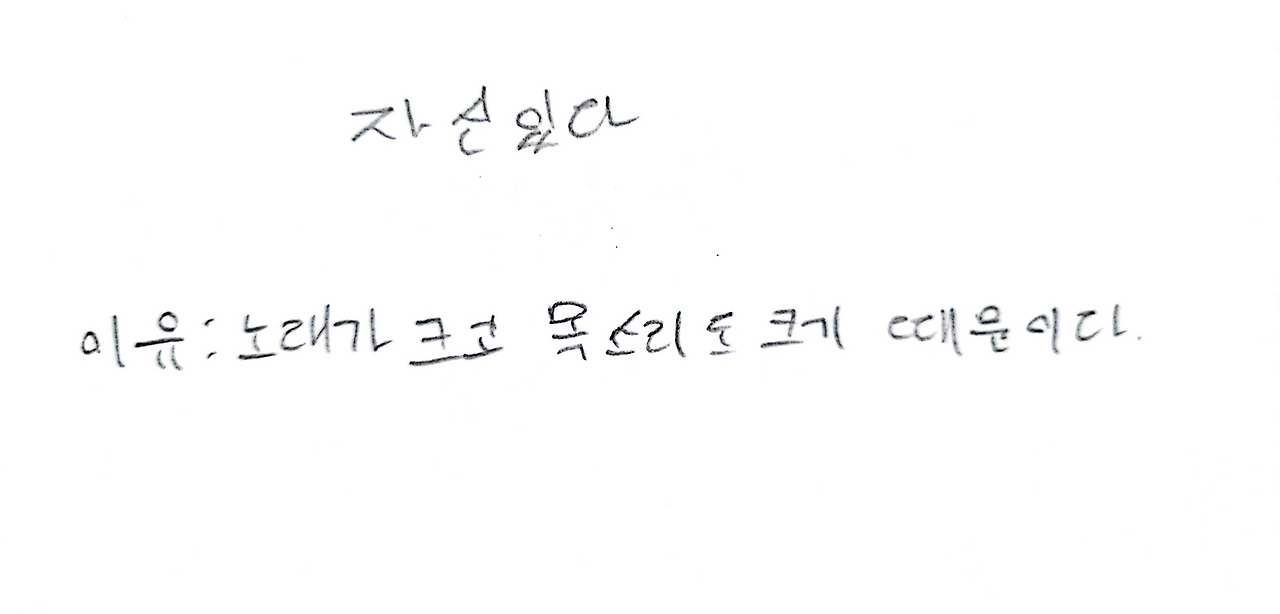 자신있다
이유: 노래가 크고 목소리도 크기 때문이다.